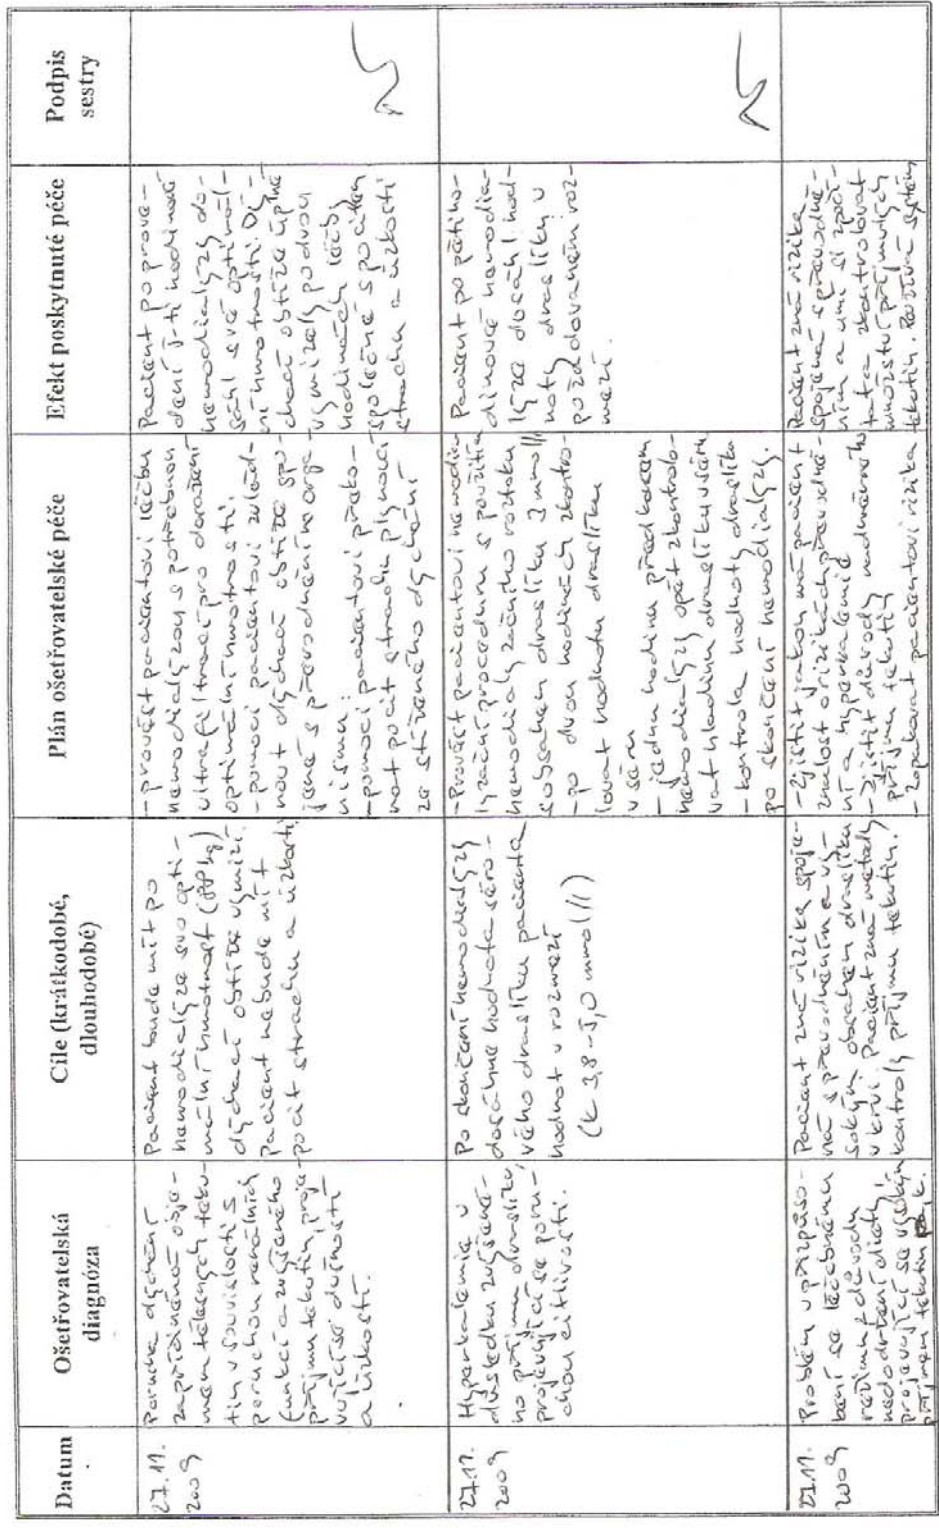 Datum
Ošetřovatelská
diagnóza
Cíle (krátkodobé,
dlouhodobé)
Plán ošetřovatelské péče
Efekt poskytnuté péče
Podpis
sestry
27.11.
2009
Porucha dýchání
zapříčiněná obje-
mem tělesných teku-
tin v souvislosti s
poruchou renálních
funkcí a zvýšeného
příjmu tekutin, proje-
vující se dušností
a úzkostí.
Pacient bude mít po
hemodialýze svo opti-
mální hmotnost
dýchací obtíže vymizí.
Pacient nebude mít
pocit strachu a úzkosti
-provést pacientovi léčbu
hemodialýzou s potřebnou
ultrafiltrací pro dosažení
optimální hmotnosti.
-pomoci pacientovi zvlád-
nout dýchací obtíže spo-
jené s převodněním orga-
nismu.
-pomoci pacientovi překo-
nat pocit strachu plynoucí
ze stíženého dýchání
Pacient po prove-
dení 5-ti hodinové
hemodialýzy do-
sáhl své optimál-
ní hmotnosti. Dý-
chací obtíže úplně
vymizely po dvou
hodinách léčby
společně s pocitem
strachu a úzkosti
27.11.
2009
Hyperkalemie v
důsledku zvýšené-
ho příjmu draslíku,
projevující se poru-
chou citlivosti.
Po skončení hemodialýzy
dosáhne hodnota séro-
vého draslíku pacienta
hodnot v rozmezí
(K 3,8-5,0 mmol/l)
-Provést pacientovi hemodia-
lyzační proceduru s použitím
hemodialyzačního roztoku
s obsahem draslíku 3 mmol/l
-po dvou hodinách zkontro-
lovat hodnotu draslíku
v séru
- jednu hodinu před koncem
hemodialýzy opět zkontrolo-
vat hladinu draslíku v séru
-kontrola hodnoty draslíku
po skončení hemodialýzy.
Pacient po pětiho-
dinové hemodia-
lýze dosáhl hod-
noty draslíku v
požadovaném roz-
mezí.
27.11.
2009
Problém v přizpůso-
bení se léčebnému
režimu z důvodu
nedodržení diety,
projevující se vysokým
příjmem tekutin
Pacient zná rizika spoje-
ná s převodněním a vy-
sokým obsahem draslíku
v krvi. Pacient zná metody
kontroly příjmu tekutin.
-Zjistit jakou má pacient
znalost o rizikách převodně-
ní a hyperkalemie
-Zjistit důvody nadměrného
příjmu tekutin
-Zopakovat pacientovi rizika
Pacient zná rizika
spojená s převodně-
ním a umí si
zkontrolovat
množství přijmutých
tekutin. Používá systém